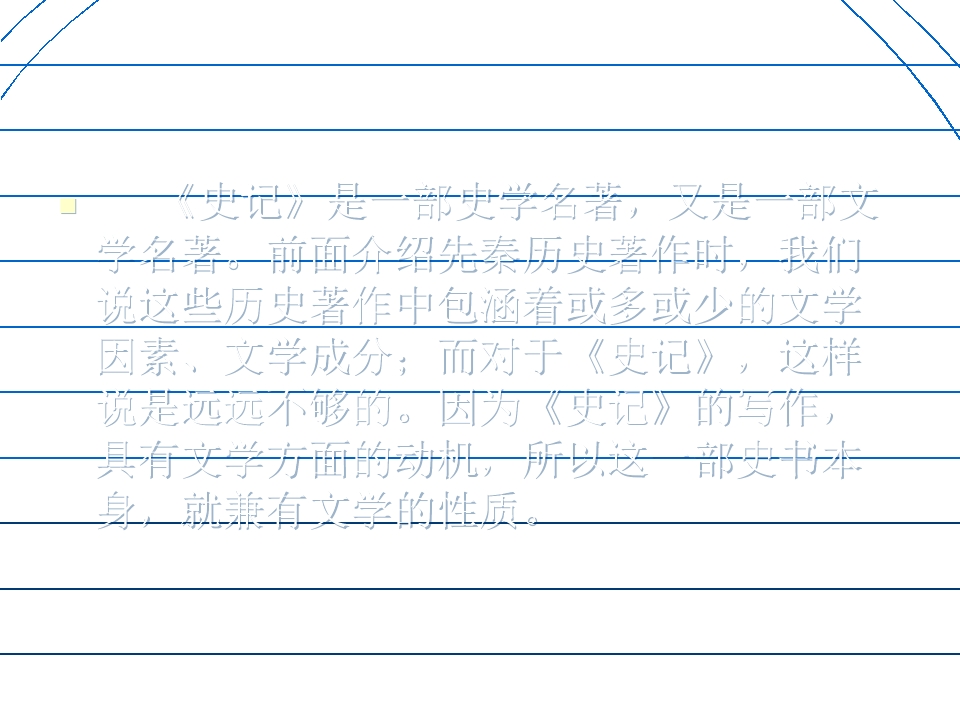 《史记》是一部史学名著，又是一部文
学名著。前面介绍先秦历史著作时，我们
说这些历史著作中包涵着或多或少的文学
因素、文学成分；而对于《史记》，这样
说是远远不够的。因为《史记》的写作，
具有文学方面的动机，所以这一部史书本
身，就兼有文学的性质。